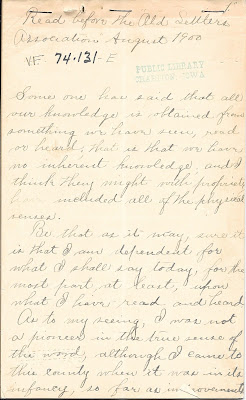 Read before the Old Settlers
Association August 1900
VF 74-131-E
PUBLIC LIBRARY
IOWA
Some one has said that all
our knowledge is obtained from
something we have seen, read
or heard, that is that we have
no inherent knowledge, and I
think they might with propriety
have included all of the physical
senses.
Be that as it may, sure it
is that I am dependent for
what I shall say today, for the
most part, at least, upon
what I have read and heard
As to my seeing, I was not
a pioneer in the true sense of
the word, although I came to
this county when it was in its
infancy, so far as improvements